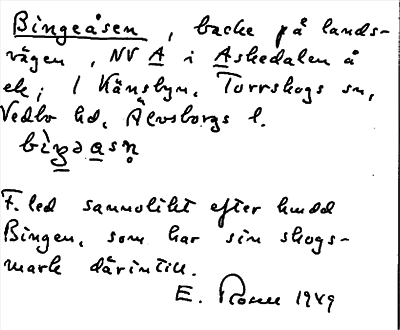 Bingeåsen, backe på lands-
vägen, NV A i Askedalen å
ek; 1 Känsbyn, Torrskogs sn,
Vedbo hd, Älvsborgs l.
bìŋəasn̥
F. led sannolikt efter hmdd
Bingen, som har sin skogs-
mark därintill.
E. 1949